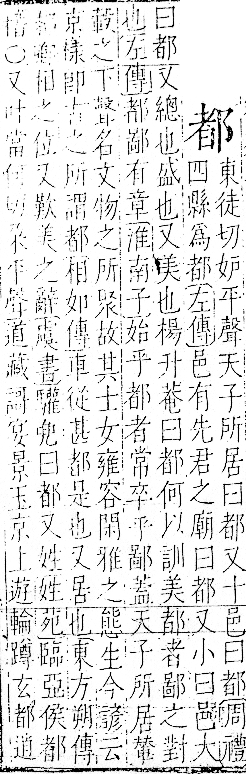 都東徒切妒平聲天子所居曰都又十邑曰都周禮
四縣爲都左傳邑有先君之廟曰都又小曰邑大
曰都又總也盛也又美也楊升菴曰都何以訓美都者鄙之對
也左傳都鄙有章淮南子始乎都者常卒乎鄙蓋天子所居輦
轂之下聲名文物之所聚故其士女雍容閑雅之態生今諺云
京樣卽古之所謂都相如傳車從甚都是也又居也東方朔傳
都卿相之位又歎美之辭虞書驩兜曰都又姓姓苑臨亞侯都
稽〇又叶當何切朶平聲道藏謌宴景玉京上遊輪蹲玄都逍